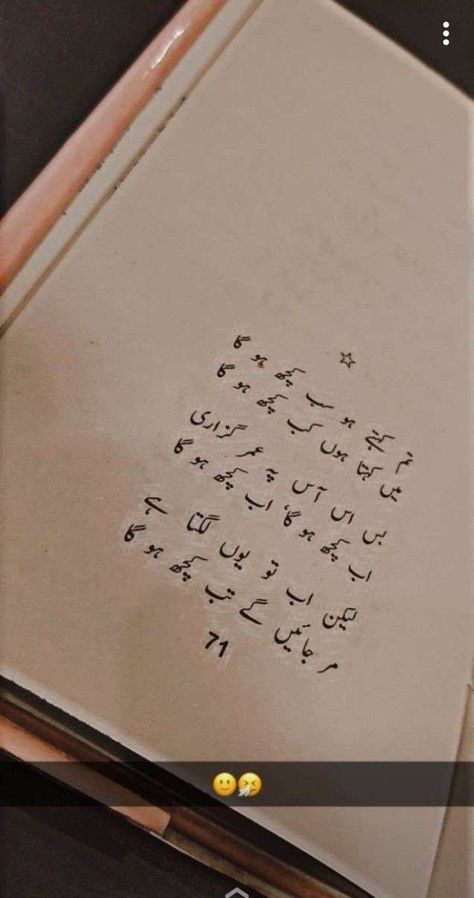 ☆
تم کہتے ہو سب کچھ ہو گا
میں کہتا ہوں کب کچھ ہو گا
بس اس آس پہ عمر گزاری
اب کچھ ہو گا، اب کچھ ہو گا
لیکن اب تو یوں لگتا ہے
مر جائیں گے تب کچھ ہو گا
71
🙂🤧